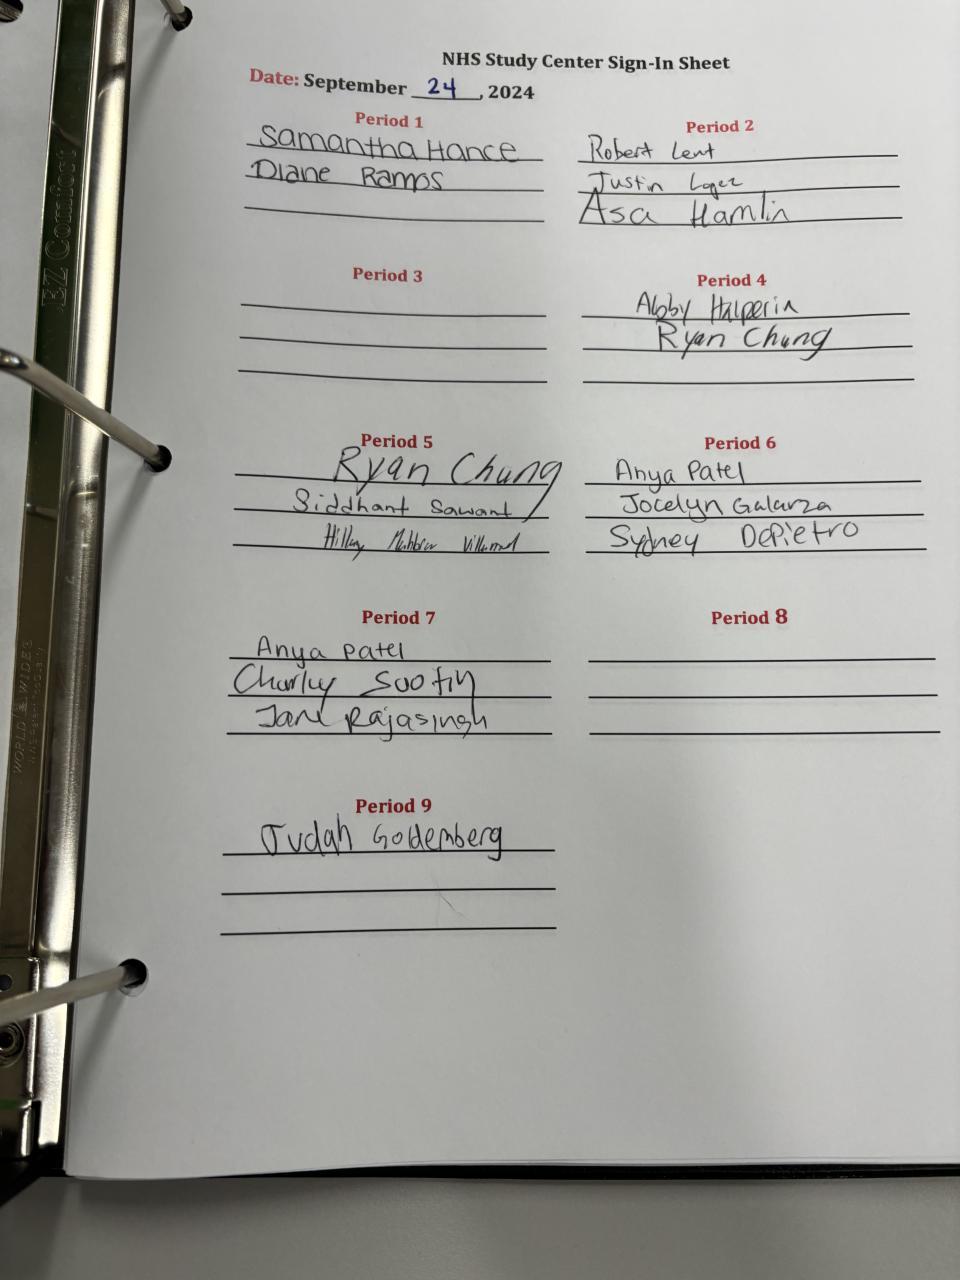 NHS Study Center Sign-In Sheet
Date: September 24, 2024
Period 1
Samantha Hance
Diane Ramos
Period 2
Robert Lent
Justin Lopez
Asa Hamlin
Period 3
Period 4
Abby Halperin
Ryan Chung
Period 5
Ryan Chung
Siddhant Sawant
Hillary
Period 6
Anya Patel
Jocelyn Galarza
Sydney DePietro
Period 7
Anya Patel
Charley
Jane Rajasingh
Period 8
Period 9
Judah Goldemberg
EZ Comfort
WORLD WIDE